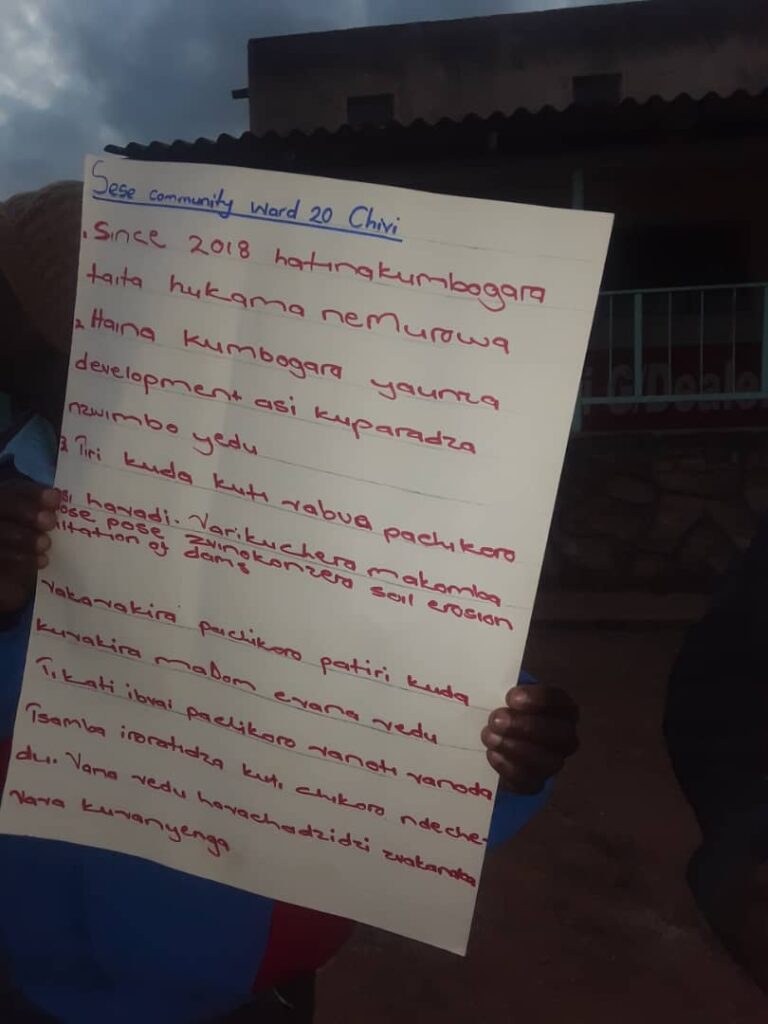 Sese community Ward 20 Chivi
1. Since 2018 hatinakumbogara
taita hukama neMurowa
2 Haina kumbogara yaunza
development asi kuparadza
nzvimbo yedu
3 Tiri kuda kuti vabva pachikoro
asi havadi. Varikuchera makomba
pose pose zvinokonzera soil erosion
siltation of dams
vakavakira pachikoro patiri kuda
kuvakira maDom evana vedu
Tikati ibvai pachikoro vanoti vanoda
Tsamba inoratidza kuti chikoro ndeche-
du. Vana vedu havachadzidzi zvakanaka
vava kuvanyenga
G/Deale